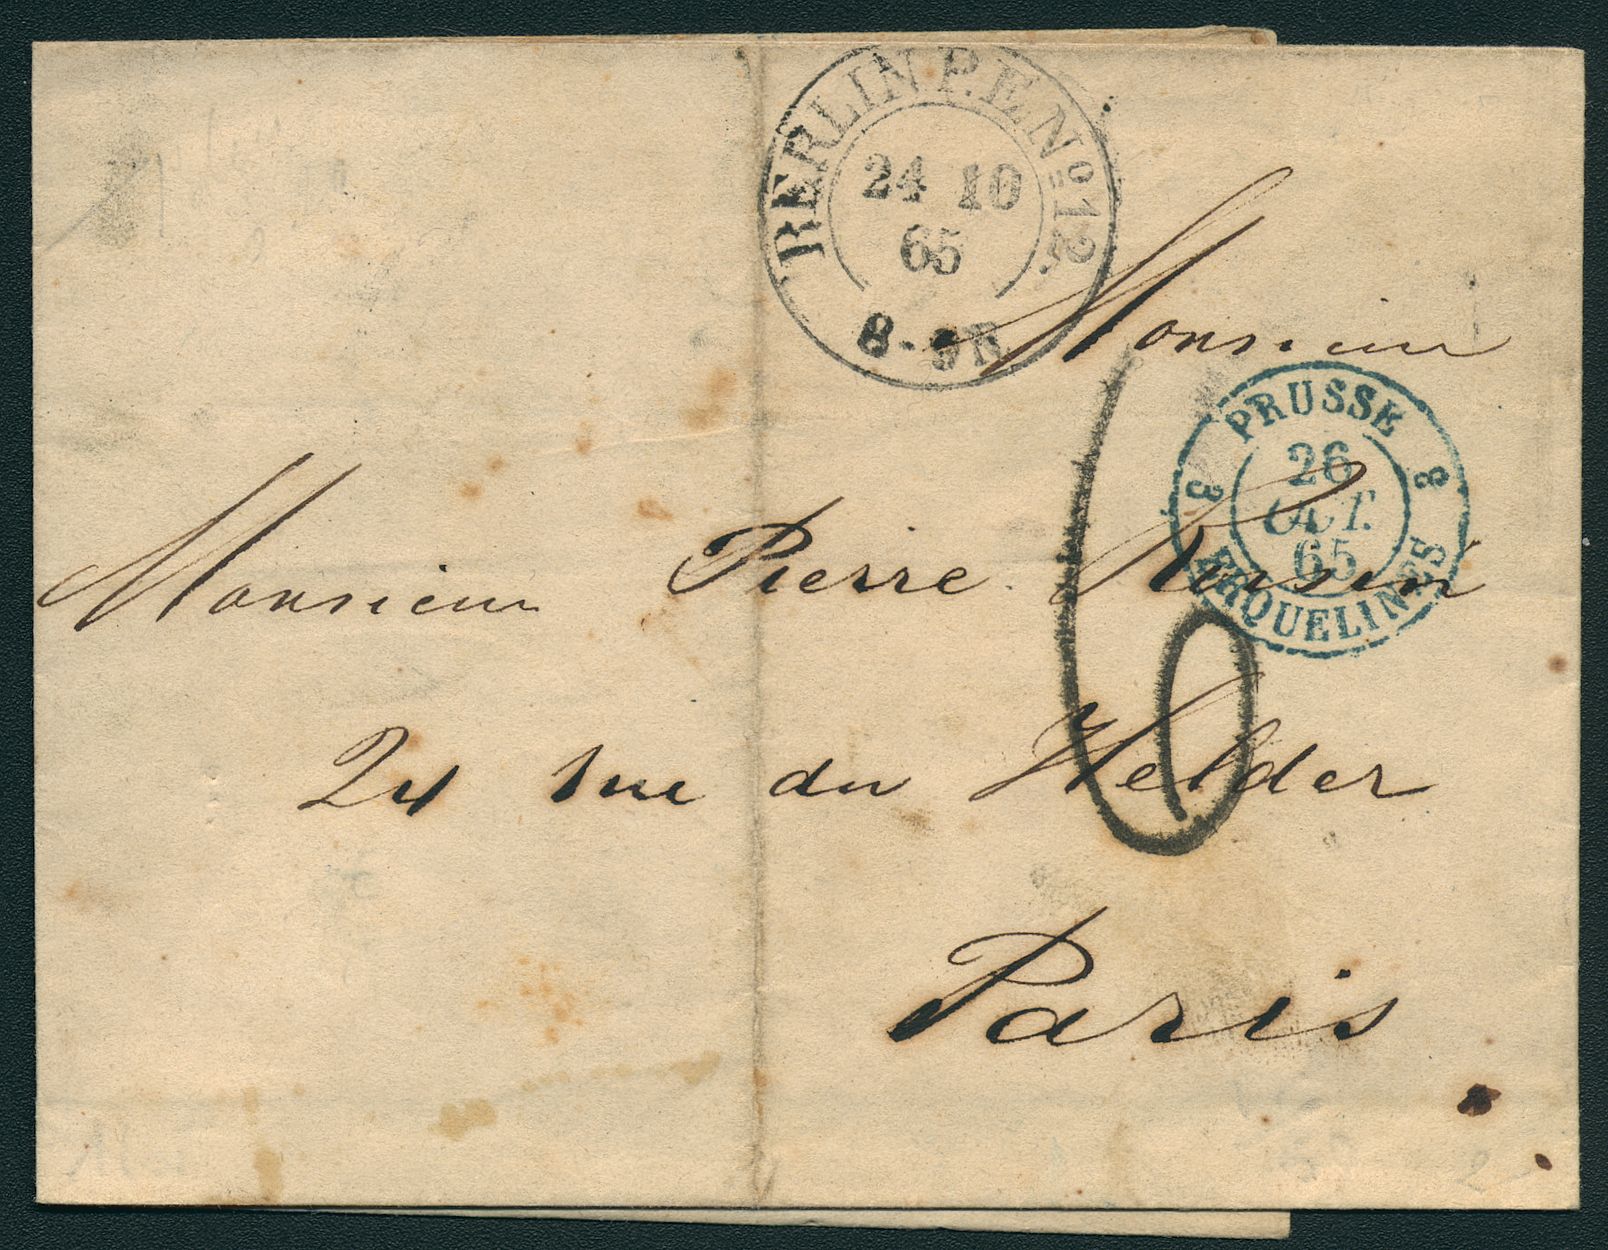 BERLIN P.E.No.12.
24 10
65
8-9
Monsieur
PRUSSE
3 3
26
OCT.
65
ERQUELINES
Monsieur Pierre
6
24 rue du Helder
Paris